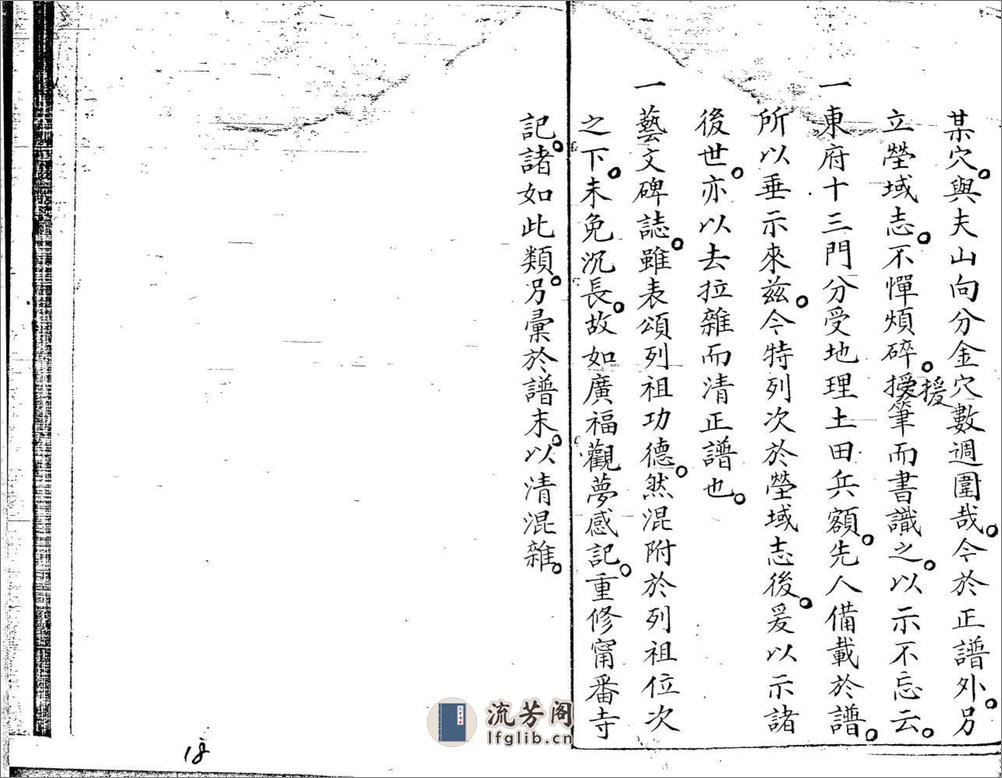 某穴。與夫山向分金穴數週圍哉。今於正譜外。另
立塋域志。不憚煩碎。援筆而書識之。以示不忘云。
援
一東府十三門分受地理土田兵額。先人備載於譜。
所以垂示來茲。今特列次於塋域志後。爰以示諸
後世。亦以去拉雜而清正譜也。
一藝文碑誌。雖表頌列祖功德。然混附於列祖位次
之下。未免沉長。故如廣福觀夢感記。重修甯番寺
記。諸如此類。另彙於譜末。以清混雜。
流芳阁
lfglib.cn
18